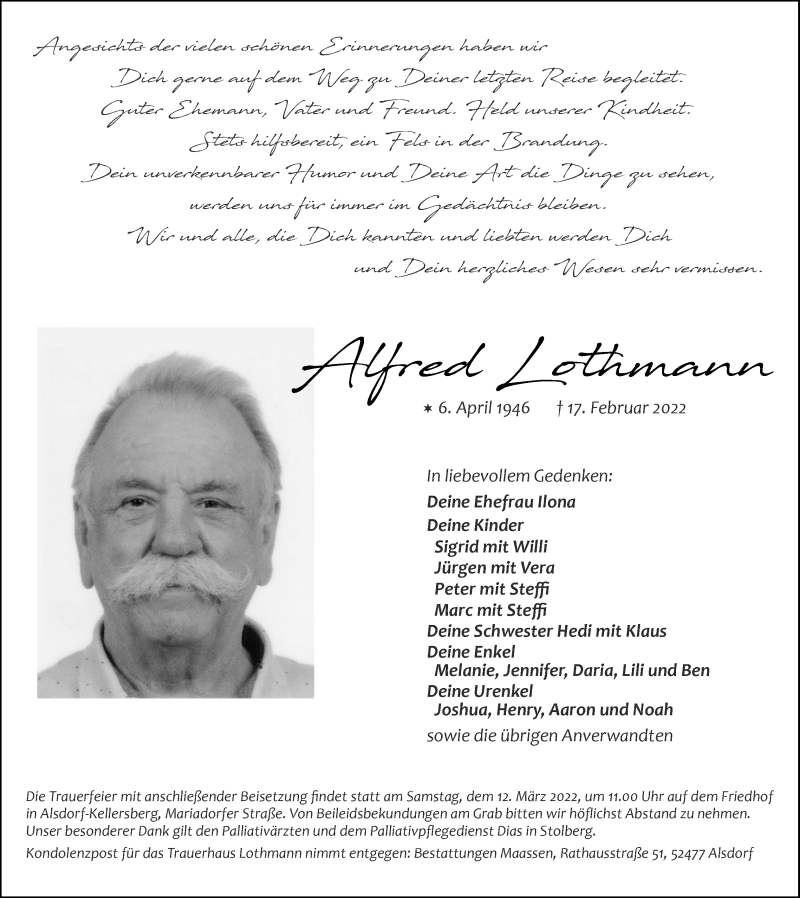 Angesichts der vielen schönen Erinnerungen haben wir
Dich gerne auf dem Weg zu Deiner letzten Reise begleitet.
Guter Ehemann, Vater und Freund. Held unserer Kindheit.
Stets hilfsbereit, ein Fels in der Brandung.
Dein unverkennbarer Humor und Deine Art die Dinge zu sehen,
werden uns für immer im Gedächtnis bleiben.
Wir und alle, die Dich kannten und liebten werden Dich
und Dein herzliches Wesen sehr vermissen.
Alfred Lothmann
✶ 6. April 1946 † 17. Februar 2022
In liebevollem Gedenken:
Deine Ehefrau Ilona
Deine Kinder
Sigrid mit Willi
Jürgen mit Vera
Peter mit Steffi
Marc mit Steffi
Deine Schwester Hedi mit Klaus
Deine Enkel
Melanie, Jennifer, Daria, Lili und Ben
Deine Urenkel
Joshua, Henry, Aaron und Noah
sowie die übrigen Anverwandten
Die Trauerfeier mit anschließender Beisetzung findet statt am Samstag, dem 12. März 2022, um 11.00 Uhr auf dem Friedhof
in Alsdorf-Kellersberg, Mariadorfer Straße. Von Beileidsbekundungen am Grab bitten wir höflichst Abstand zu nehmen.
Unser besonderer Dank gilt den Palliativärzten und dem Palliativpflegedienst Dias in Stolberg.
Kondolenzpost für das Trauerhaus Lothmann nimmt entgegen: Bestattungen Maassen, Rathausstraße 51, 52477 Alsdorf